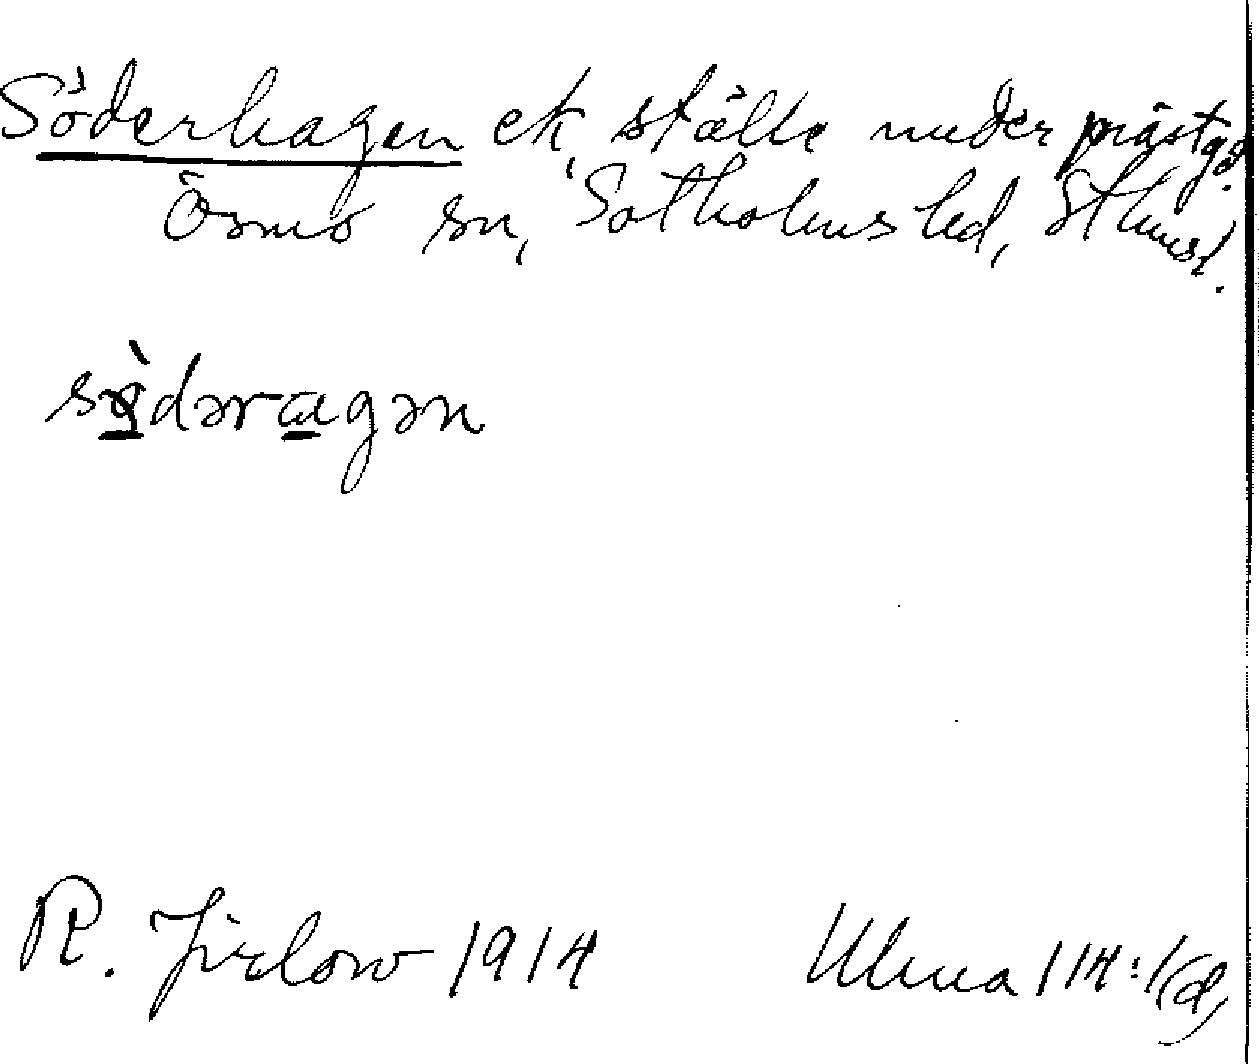 Söderhagen ek, ställe under prästgd.
Ösmo sn, Sotholms hd, Sthmsl.
sö̀dəraɡən
R. Jirlow 1914 Ulma 114:1(d)